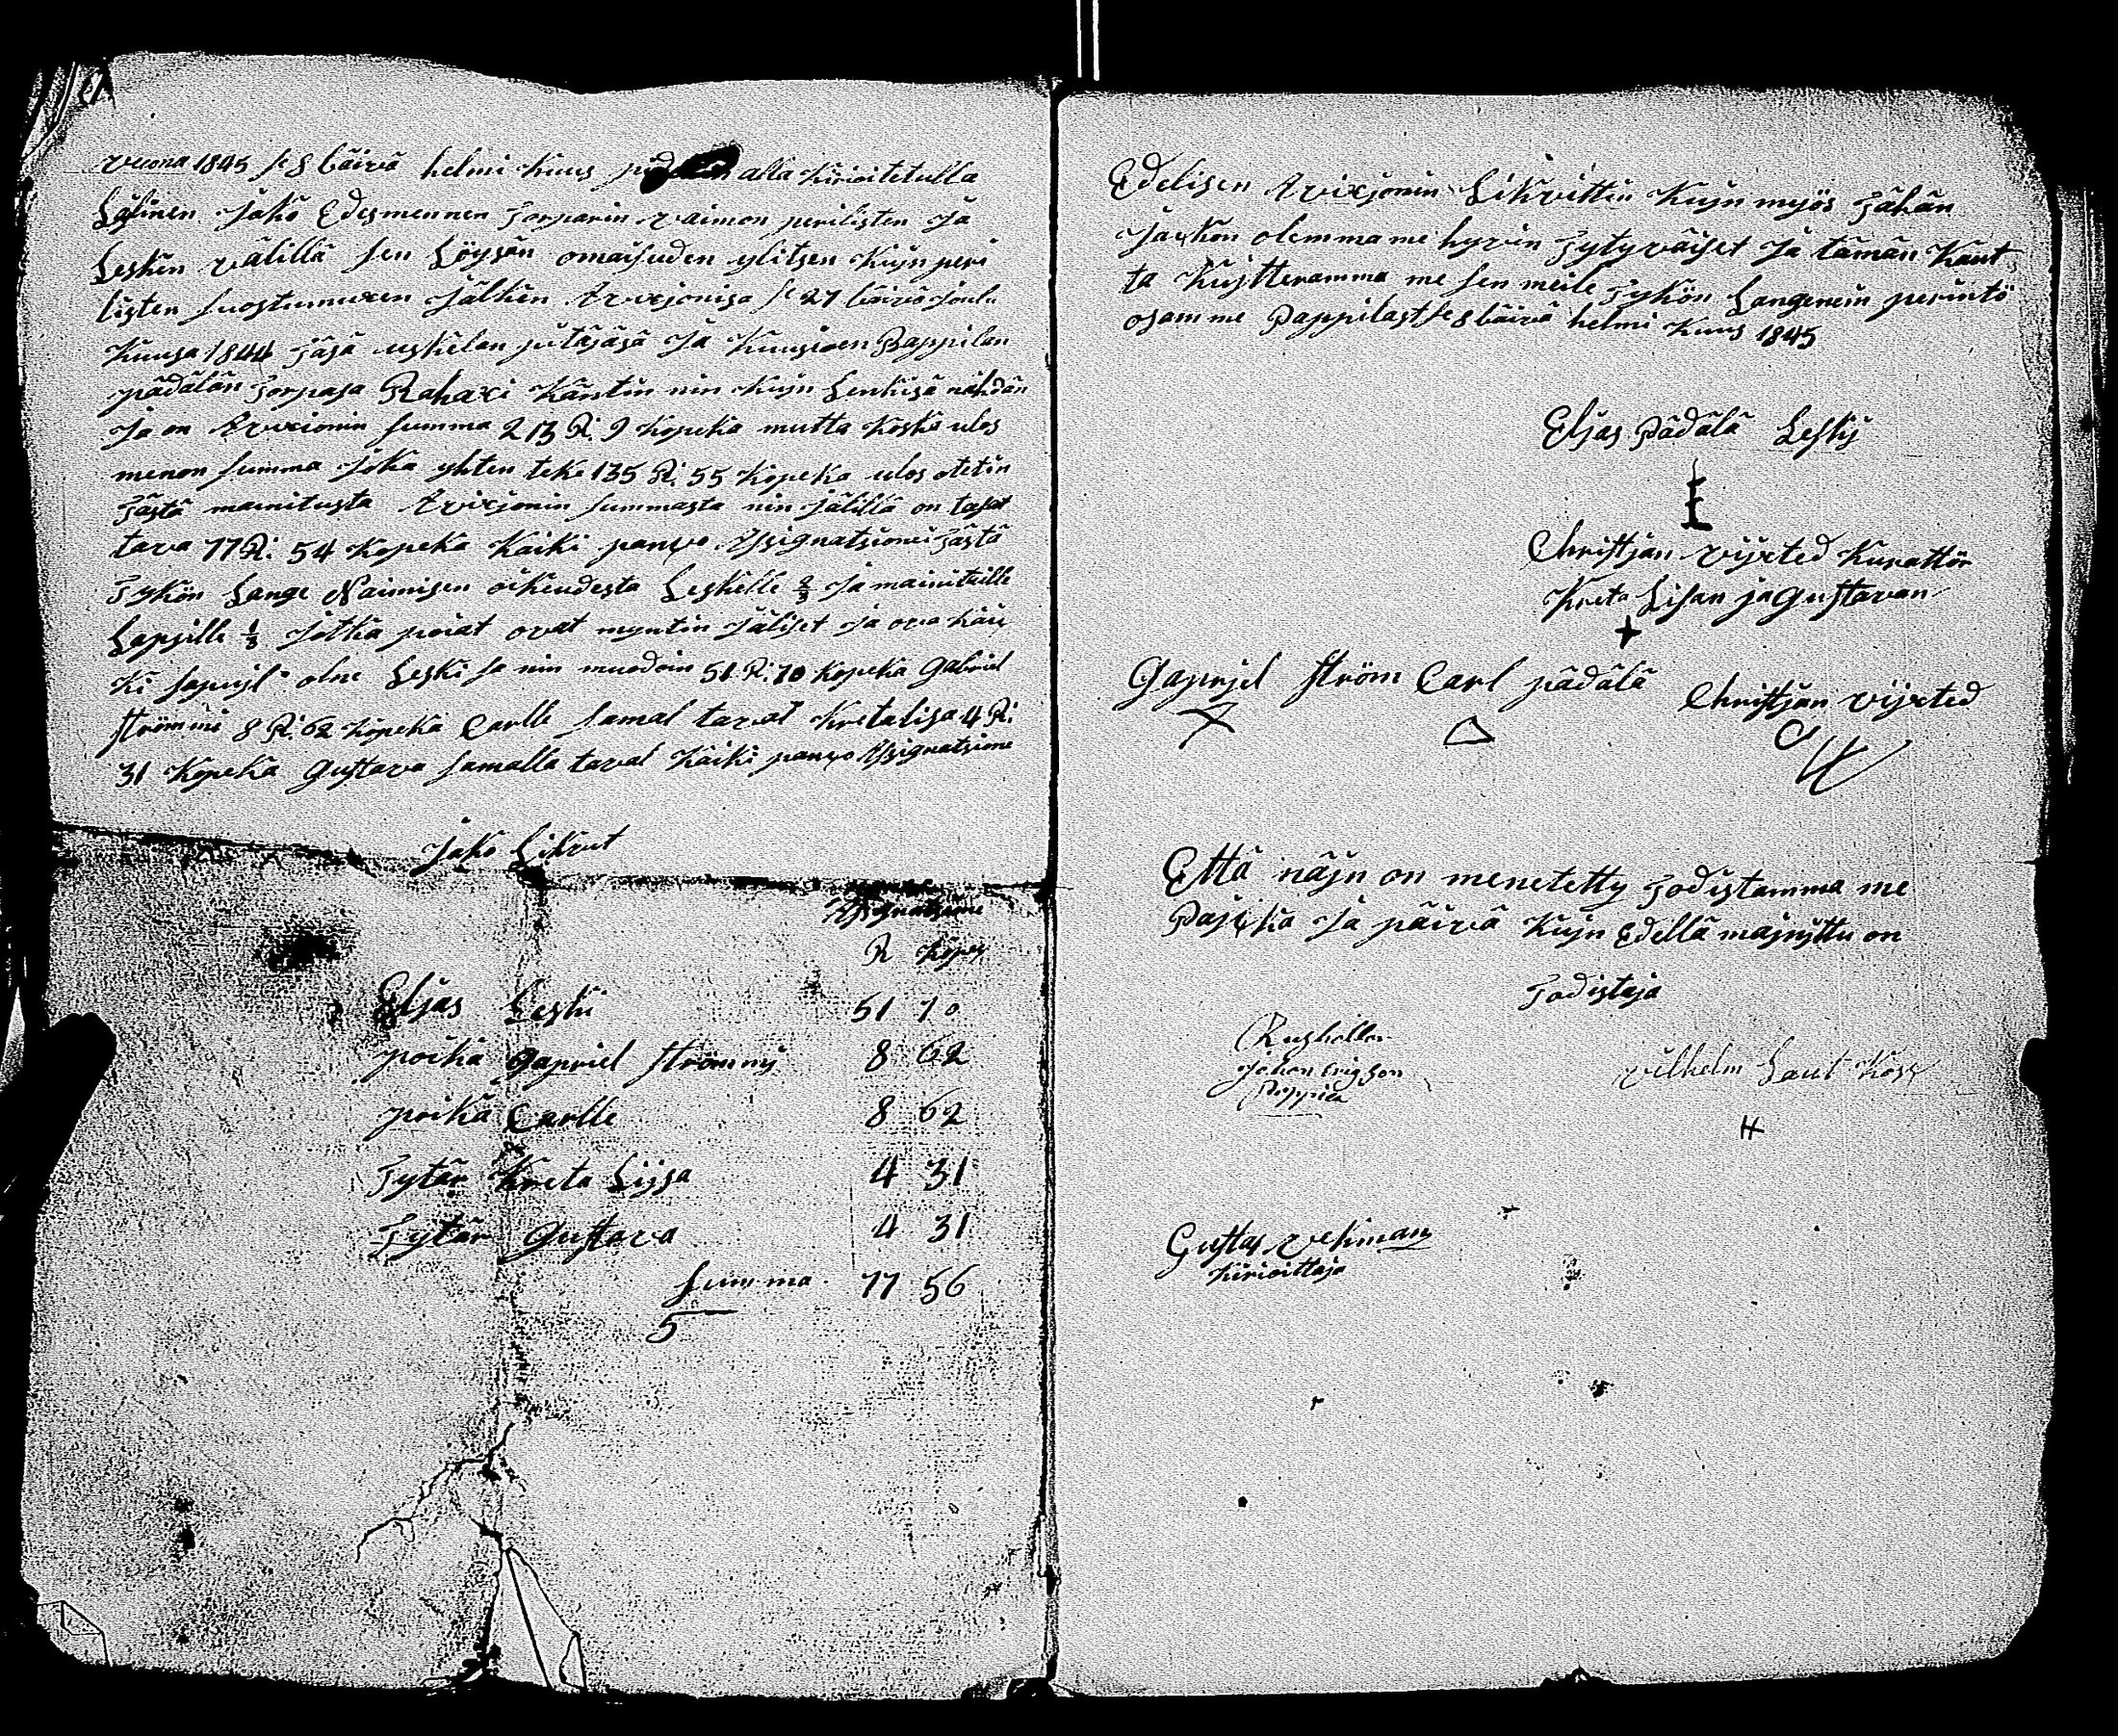 vuona 1845 se 8 bäivä helmi kuus alla kirioitetulla
Lajlinen Jako Edesmennen Torparin vaimon perilisten Ja
Leskin välillä sen Löysän omaisuden ylitsen kujn peri
listen suostumuxen Jälken Auxjonisa se 27 bäivä Joulu
kuusa 1844 Täsä uskelan pitäjäsä Ja kuusioen Pappilan
pädälän Torpasa Rahaxi käntin nin kujn Lenkisä nähdän
Ja on Auxionin summa 213 R. 9 kopeka mutta koska ulos
menon summa Joka yhten teke 135 R. 55 kopeka ulos otetin
Tästä mainitusta Auxjonin summasta nin Jälillä on tasat
tava 77 R. 54 kopeka kaiki panco Assignatsioni Tästä
Tykön Lange Naimisen oikeudesta Leskelle 2/3 Ja mainituille
Lapsille 1/3 Jotka poiat ovat myntin Jäliset Ja ova
ki olne Leski sa nin muodoin 51 R. 70 kopeka Gabriel
strömmi 8 R. 62 kopeka Carlle samal tavat kretalisa 4 R.
31 kopeka Gustava samalla taval kaiki panco Assignatsione
Jako Likvit
Assignatsione
R kopek
Eljas Leski 51 70
poika Gapriel strömmj 8 62
poika Carlle 8 62
Tytär Kreta Lijsa 4 31
Tytär Gustava 4 31
summa 77 56
5
Edelisen Auxjonin Likvittin kujn myös Tähän
Jackon olemma me hyvin Tytyväiset Ja tämän kaut
ta kujtteramma me sen meile Tykön Langenein perintö
osamme Pappilast se 8 bäivä helmi kuus 1845
Eljas Pädälä Leskij
Christjan vijxted kurattör
Kreta Lisan ja Gustavan
Gaprjel ström Carl pädälä Christjan vijxted
Että näjn on menetetty Todistamma me
Pajcka Ja päivä kujn Edellä majnjttu on
Todistaja
Rushollar
Johan Erigson
Pappila
vilhelm
H
Gustaf vekman
kirioittaja